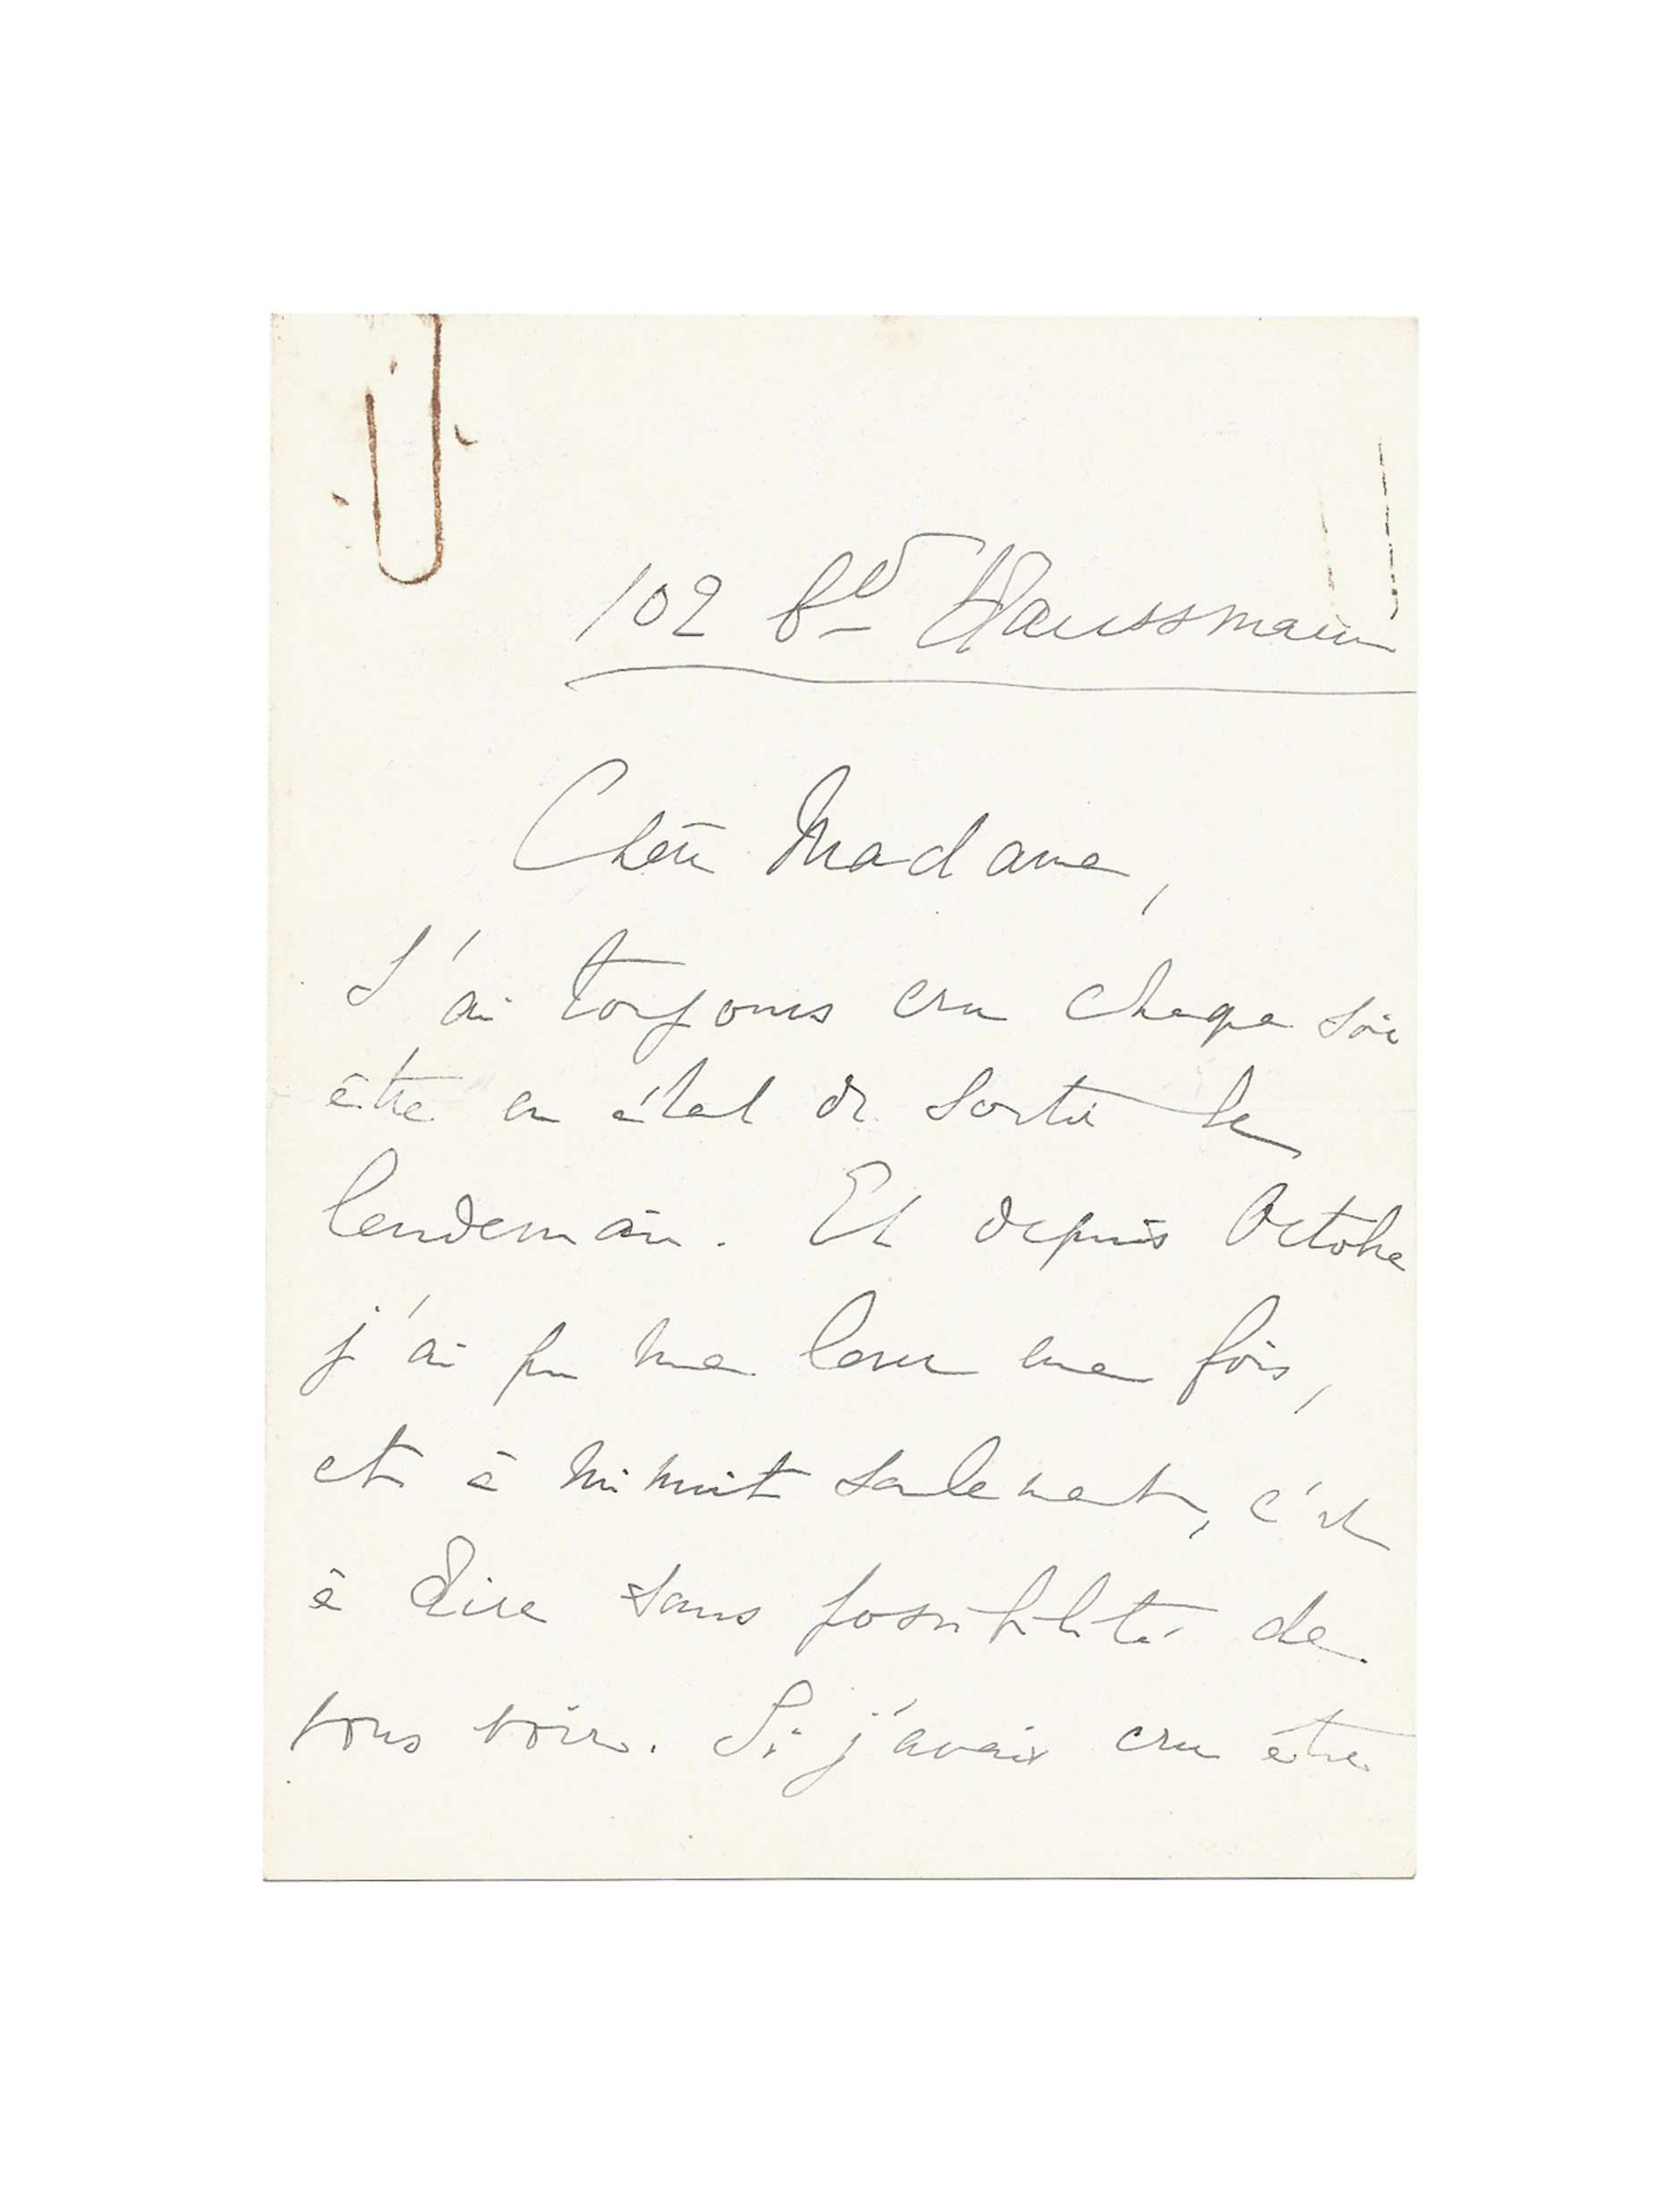 102 bd Haussmann
Chère Madame,
J'ai toujours cru chaque soir
être en état de sortir le
lendemain. Et depuis Octobre
j'ai pu me lever une fois,
et à minuit seulement, c'est
à dire sans possibilité de
vous voir. Si j'avais cru être